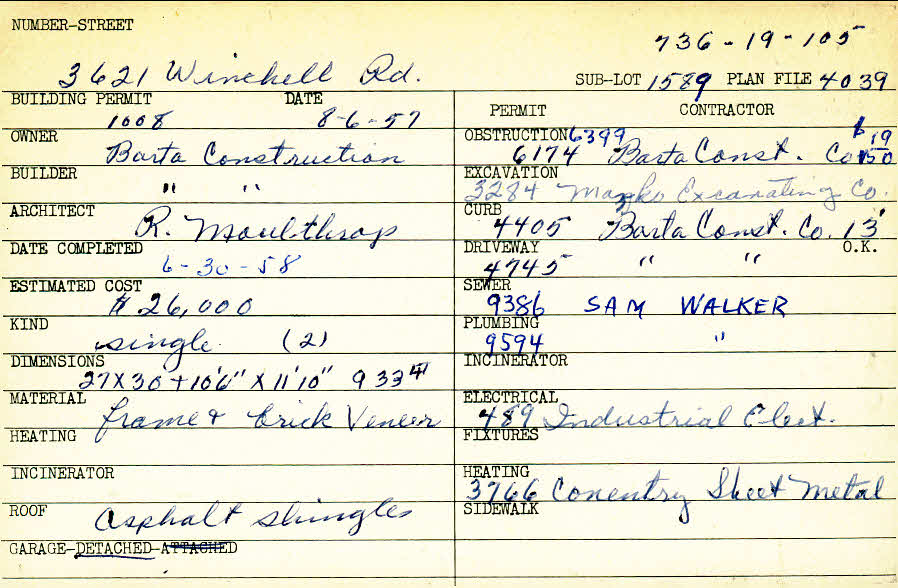 NUMBER-STREET
736-19-105
3621 Winchell Rd.
SUB-LOT 1589 PLAN FILE 4039
BUILDING PERMIT DATE
1008 8-6-57
OWNER
Barta Construction
BUILDER
" "
ARCHITECT
R. Moulthrop
DATE COMPLETED
6-30-58
ESTIMATED COST
$ 26,000
KIND
single (2)
DIMENSIONS
27X30+10'6" X 11'10" 933
MATERIAL
frame & brick Veneer
HEATING
INCINERATOR
ROOF
asphalt shingles
GARAGE-DETACHED-ATTACHED
PERMIT CONTRACTOR
OBSTRUCTION 6399 $ 19
6174 Barta Const. Co 150
EXCAVATION
3284 Excavating Co.
CURB
4405 Barta Const. Co. 13'
DRIVEWAY O.K.
4745 " "
SEWER
9386 SAM WALKER
PLUMBING
9594 "
INCINERATOR
ELECTRICAL
489 Industrial Elect.
FIXTURES
HEATING
3766 Coventry Sheet Metal
SIDEWALK